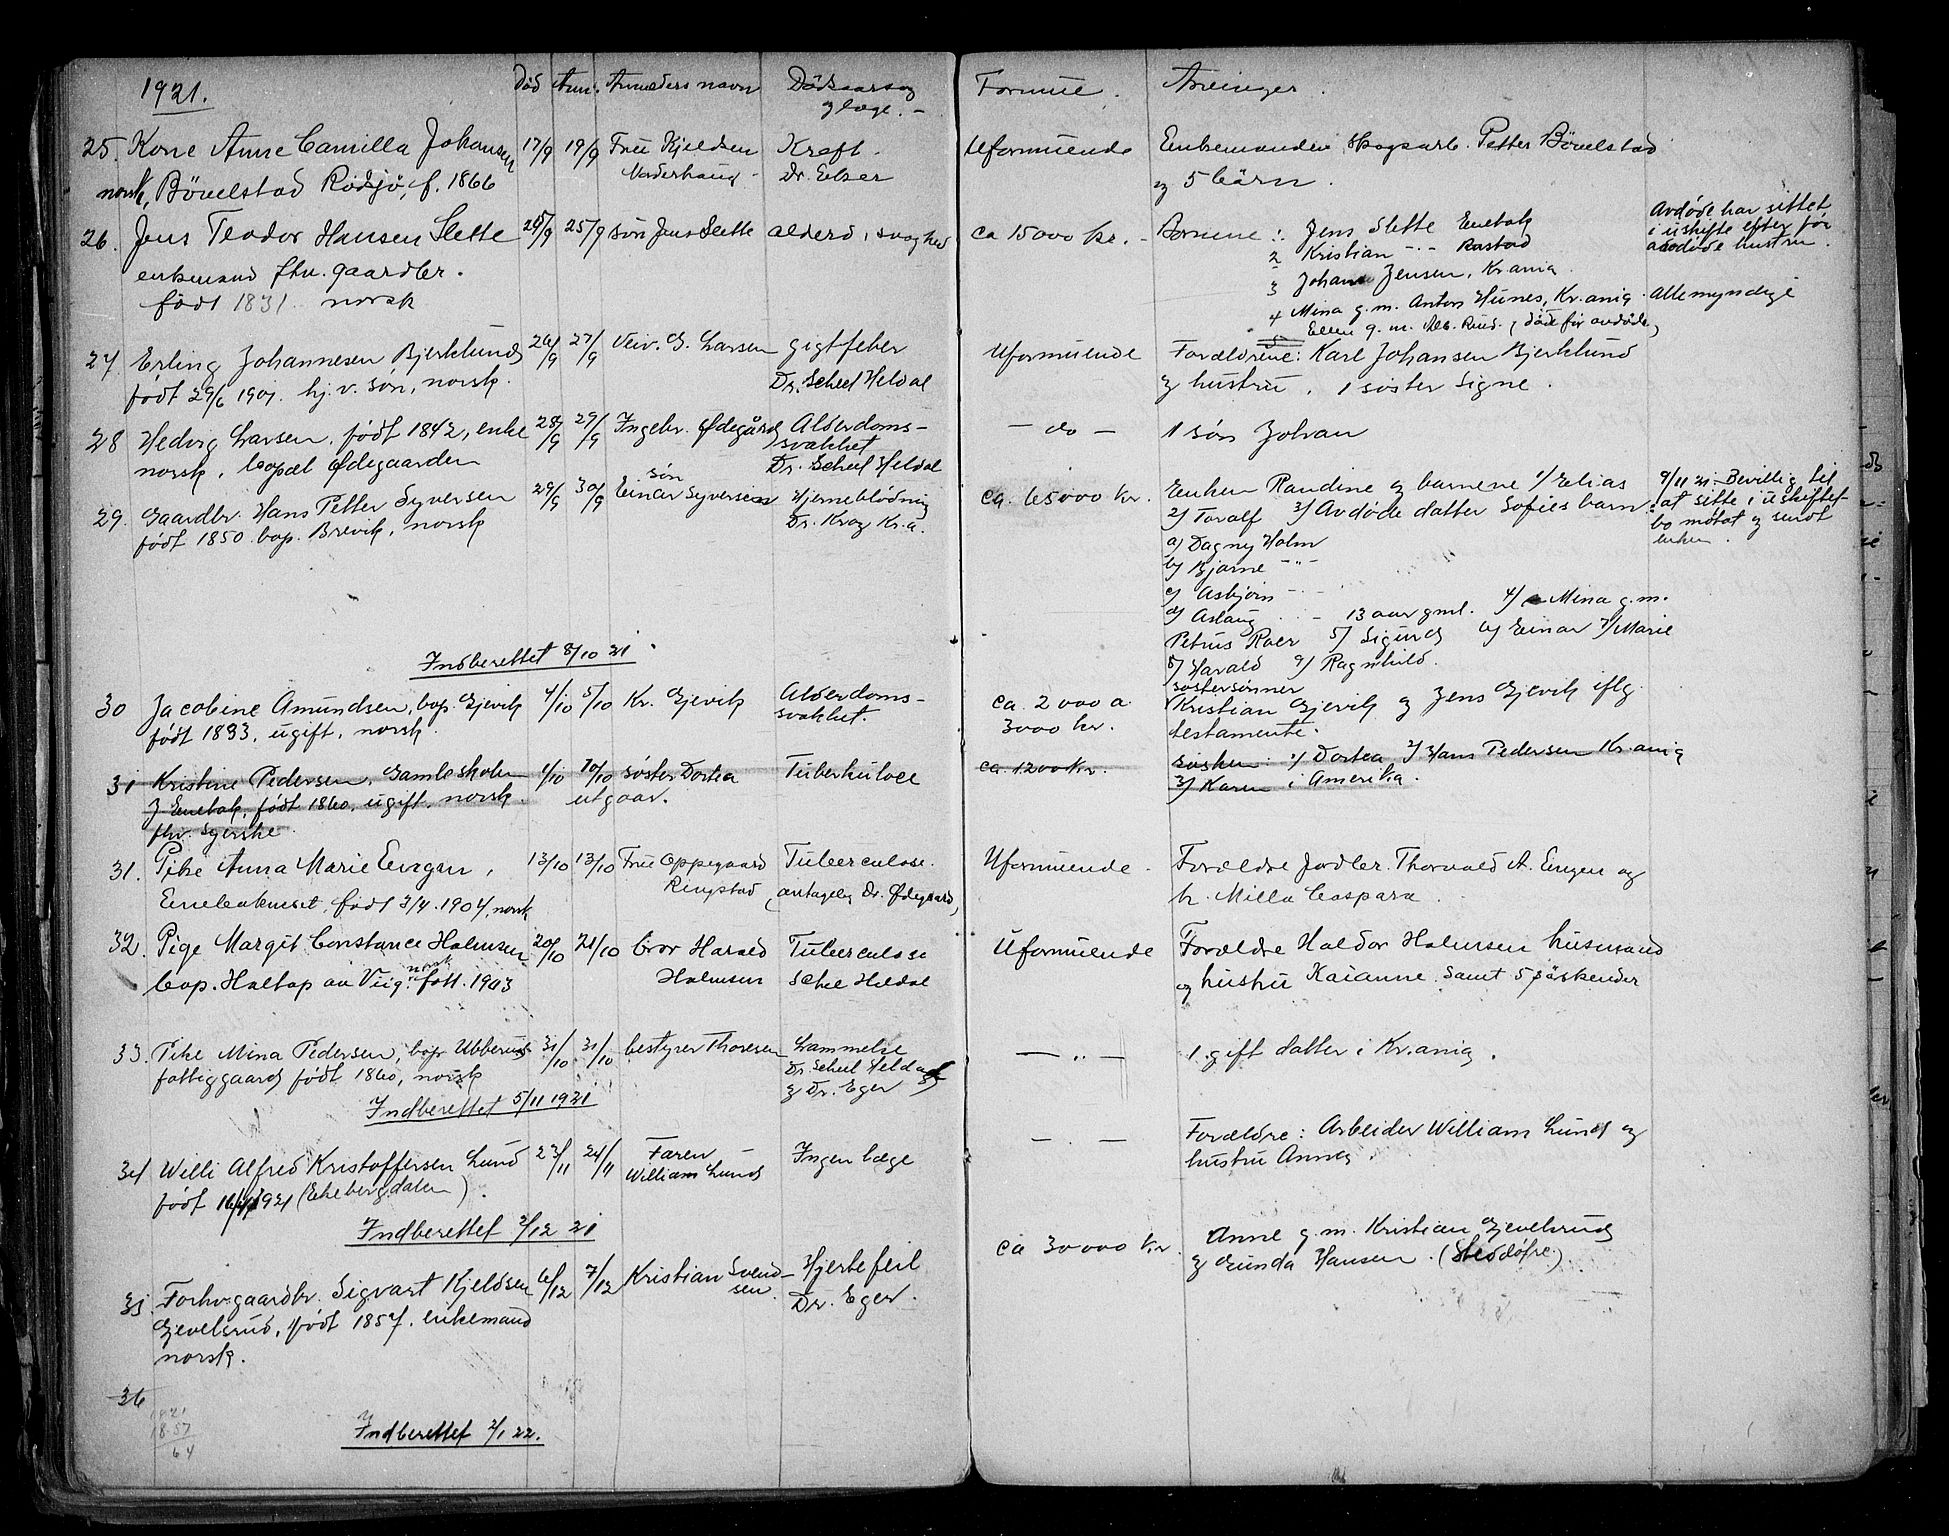 1921.
Død Anm. Anmelders navn Dødsaarsag
og læge. –
Formue. Arvinger.
25. Kone Anne Camilla Johansen 17/9 19/9 Fru Kjeldsen Kræft.
norsk, Bövelstad Rødsjö, f. 1866 Nordenhaug – Dr. Elser
Uformuende Enkemanden Skogsarb. Petter Bövelstad
og 5 bärn.
26. Jens Teodor Hansen Slette 25/9 25/9 søn Jens Slette alderd. svaghed
enkemand fhv. gaardbr.
født 1831. norsk
ca 15000 kr. – Børnene: Jens Slette Enebak
2 Kristian –"– Rustad
3 Johan Jensen, Kr.ania
4 Mina g. m. Anton Hunes, Kr.ania.
Ellen g. m. Alb. Ruud. (död för avdøde)
Avdøde har sittet
i uskifte efter før
avdøde hustru.
Alle myndige
27 Erling Johannesen Bjerklund 26/9 27/9 Veiv. G. Larsen gigtfeber
født 29/6 1901. hj. v. søn, norsk. Dr. Scheel Heldal
Uformuende Forældrene: Karl Johansen Bjerklund
og hustru. 1 søster Signe.
28 Hedvig Larsen, født 1842, enke 28/9 29/9 Ingebr. Ødegård Alderdoms-
norsk, bopæl Ødegaarden svakhet
Dr. Scheel Heldal
– do – 1 søn Johan
29. Gaardbr. Hans Petter Syversen 29/9 30/9 søn Einar Syversen Hjerneblödning
født 1850. bop. Brevik, norsk Dr. Krog Kr.a.
ca. 65000 kr. Enken Randine og barnene 1/ Elias
2/ Toralf 3/ Avdøde datter Sofies barn:
a) Dagny Holm
b) Bjarne –"–
c) Asbjørn –"–
d) Aslaug –"– 13 aar gml. 4/ Mina g. m.
Petrus Roer 5/ Sigurd 6/ Einar 7/ Marie
8/ Harald 9/ Ragnhild.
9/11 21. Bevillig til
at sitte i uskiftet
bo motat og sendt
enken.
Indberettet 8/10 21.
30 Jacobine Amundsen, bop. Gjevik 4/10 5/10 Kr. Gjevik Alderdoms-
født 1833, ugift, norsk. svakhet.
ca. 2000 a
3000 kr.
søstersønner
Kristian Gjevik og Jens Gjevik iflg.
testamente.
31 Kristine Pedersen, Gamleskolen 4/10 10/10 søster Dortea Tuberkulose
I Enebak, født 1860, ugift, norsk. utgaar.
fhv. Syerske.
ca. 1200 Kr. søsken: 1/ Dortea 2/ Hans Pedersen Kr.ania
3/ Karen i Amerika.
31. Pike Anna Marie Engen, 13/10 13/10 Fru Oppegaard Tuberculose.
Enebakneset, født 3/4. 1904, norsk Ringstad (antagelig Dr. Ødegaard)
Uformuende. Forældre Jordbr. Thorvald A. Engen og
h. Milla Caspara.
32. Pige Margit Constance Holmsen 20/10 21/10 bror Harald Tuberculose
bop. Haltop av Viig. norsk født. 1903 Holmsen Schel Heldal
Uformuende Forældre Haldor Holmsen husmand
og hustru Kaianne samt 5 söskender
33. Pike Mina Pedersen, bop. Ubberud 31/10 31/10 bestyrer Thoresen Lammelse
fattiggaard født 1860, norsk Dr. Scheel Heldal
og Dr. Eger
– " – 1. gift datter i Kr.ania.
Indberettet 5/11 1921
34 Willi Alfred Kristoffersen Lund 23/11 24/11 Faren – Ingen læge
født 1921 (Ekebergdalen). William Lund
– . – Forældre: Arbeider William Lund og
hustru Anna.
Indberettet 2/12 21
35. Forhv. gaardbr. Sigvart Kjeldsen 6/12 7/12 Kristian Svend- Hjertefeil
Gjevelsrud, født 1857. enkemand sen. Dr. Eger.
norsk.
ca 30000 kr. Anne g. m. Kristian Gjevelsrud
og Gunda Hansen. (Steddøtre).
36
1921
1857
64
Indberettet 2/1 22.